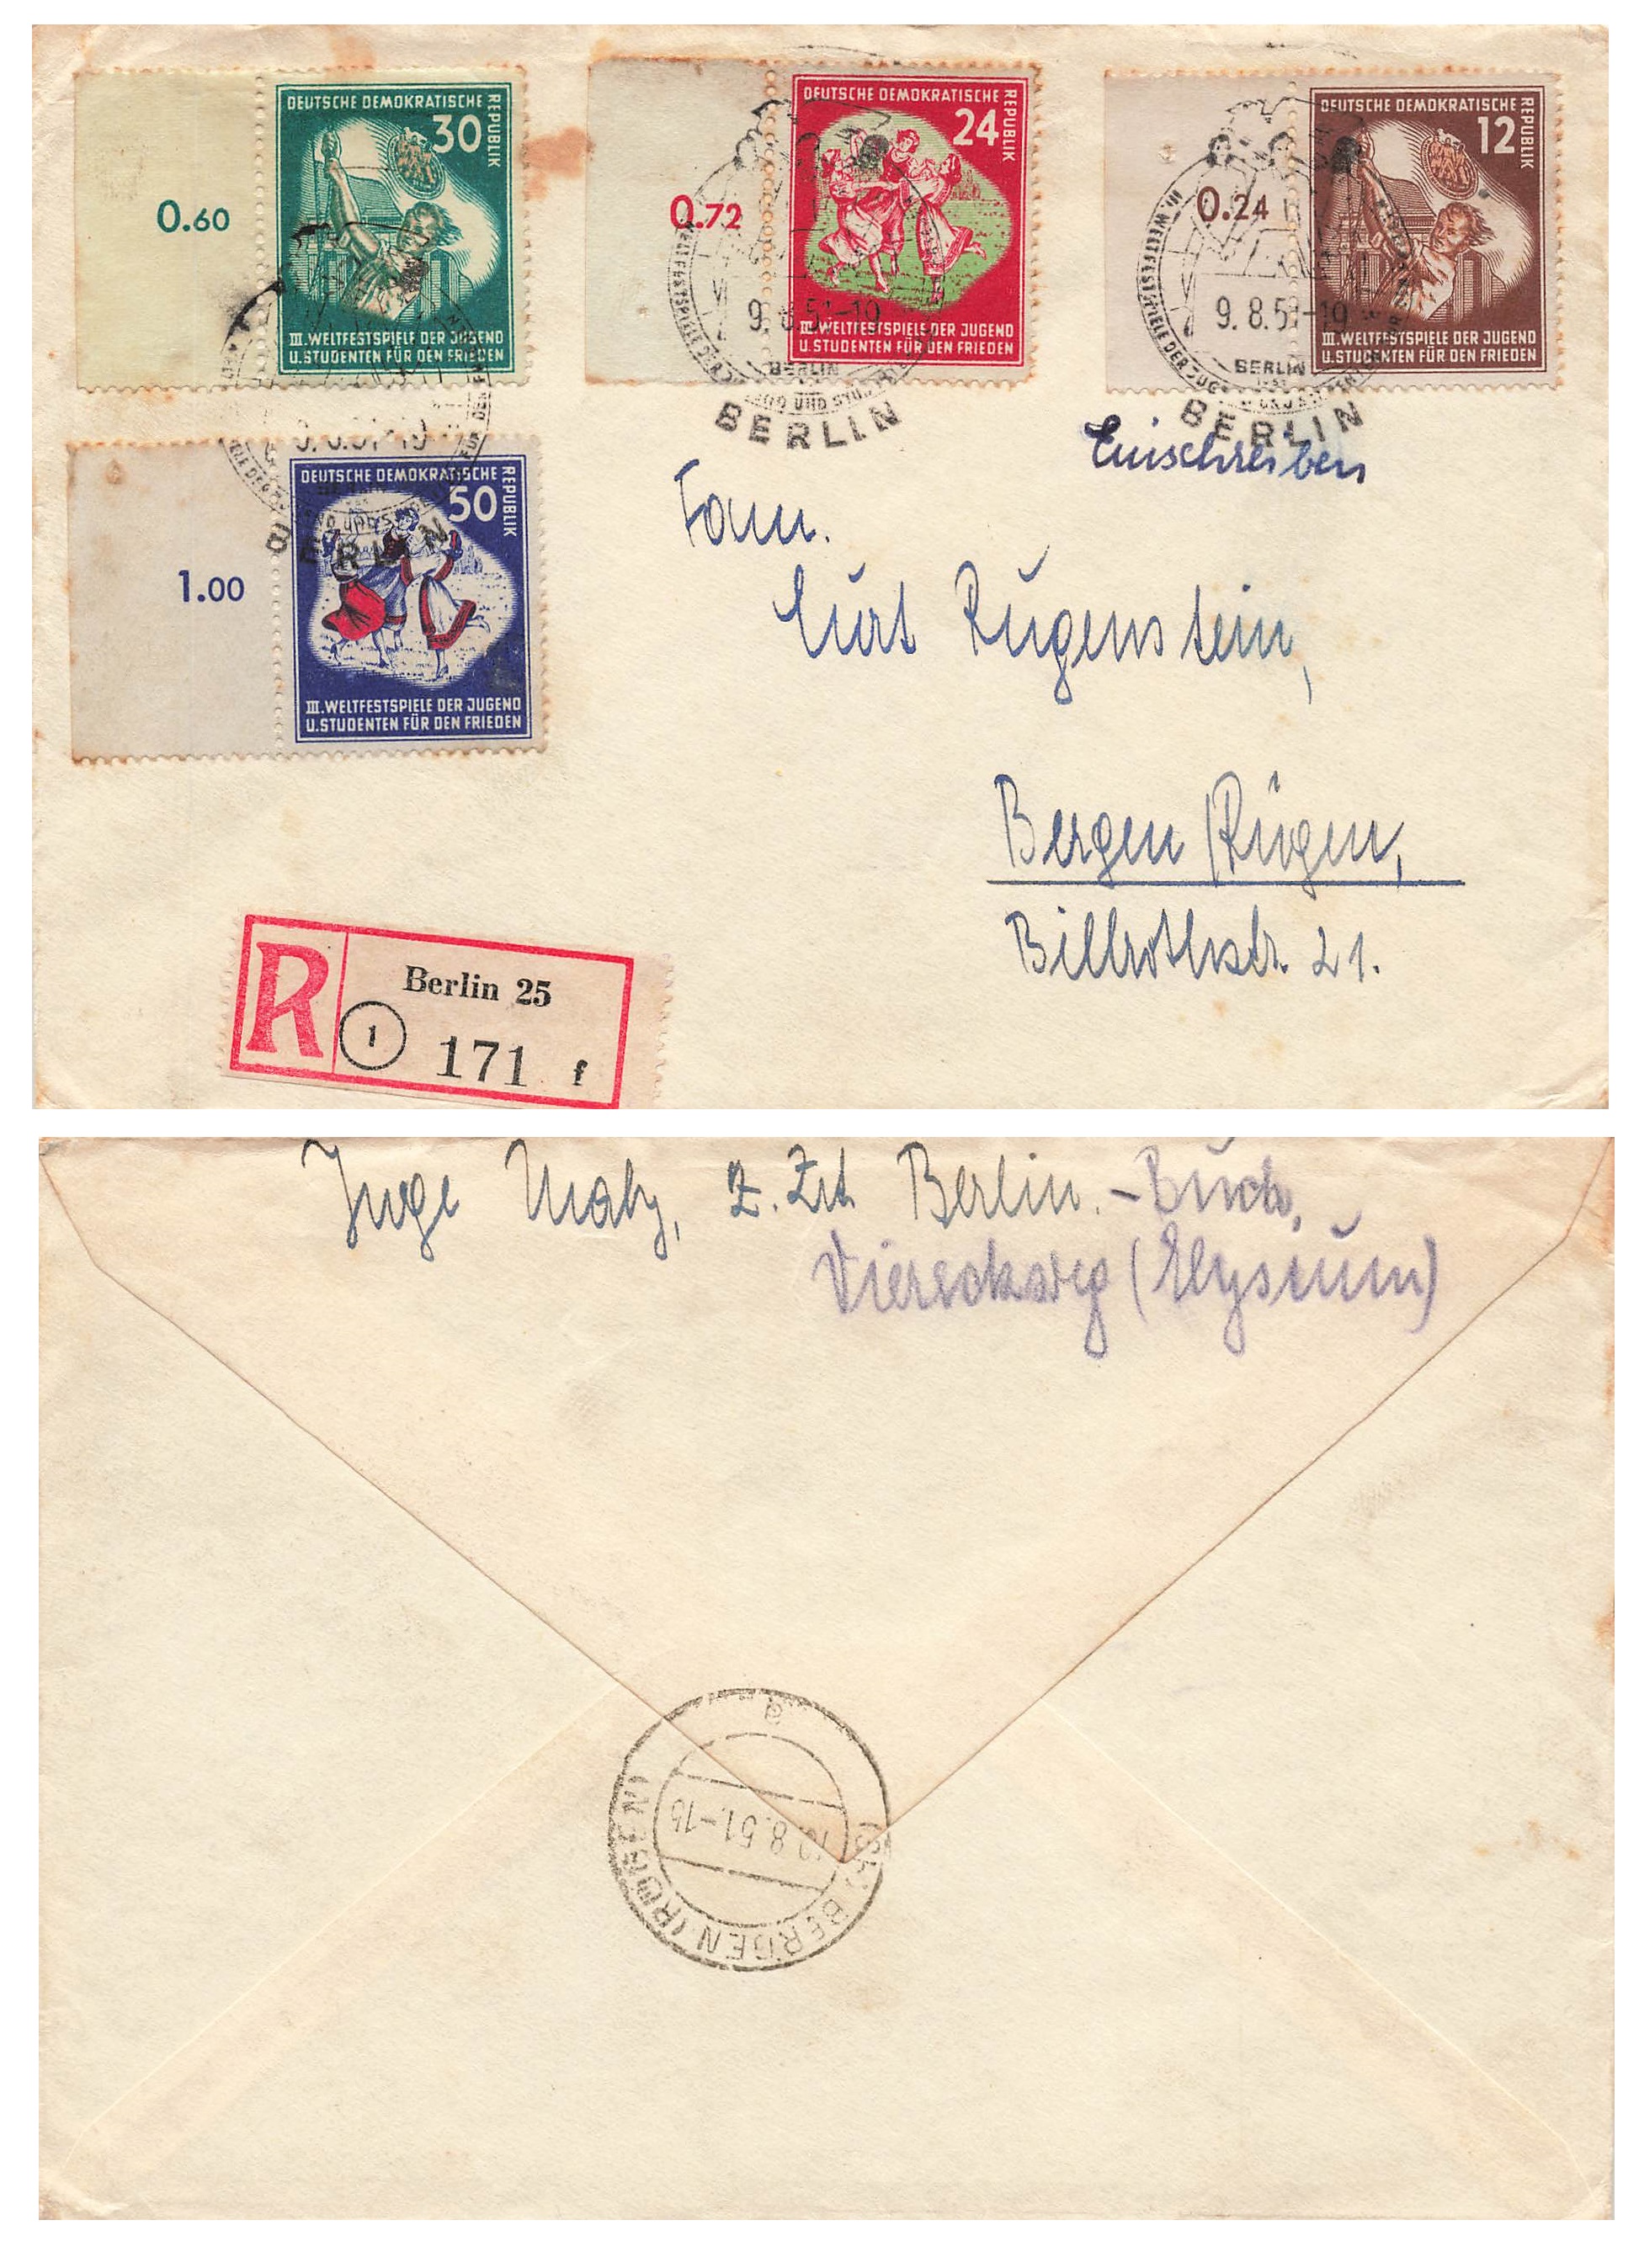 DEUTSCHE DEMOKRATISCHE
REPUBLIK
30
0.60
III. WELTFESTSPIELE DER JUGEND
U. STUDENTEN FÜR DEN FRIEDEN
DEUTSCHE DEMOKRATISCHE
REPUBLIK
24
0.72
III. WELTFESTSPIELE DER JUGEND
U. STUDENTEN FÜR DEN FRIEDEN
9.8.51-19
BERLIN
BERLIN
DEUTSCHE DEMOKRATISCHE
REPUBLIK
12
0.24
III. WELTFESTSPIELE DER JUGEND
U. STUDENTEN FÜR DEN FRIEDEN
III. WELTFESTSPIELE DER JUGEND
9.8.51-19
BERLIN
1951
BERLIN
DEUTSCHE DEMOKRATISCHE
REPUBLIK
50
1.00
III. WELTFESTSPIELE DER JUGEND
U. STUDENTEN FÜR DEN FRIEDEN
BERLIN
Einschreiben
Fam.
Curt Rugenstein,
Bergen/Rügen,
Billrothstr. 21.
R
Berlin 25
1
171 f
Inge Maly, z. Zt. Berlin.-Buch,
Viereckweg (Elysium)
BERGEN (RÜGEN)
10.8.51.-15